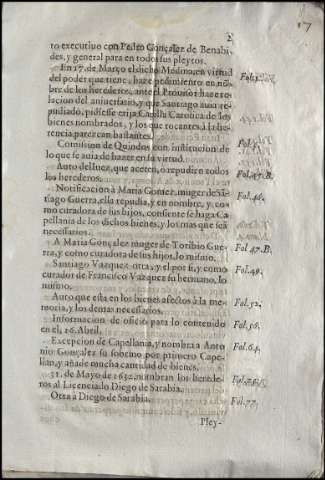 17
2
to executiuo con Pedro Gonçalez de Benabi-
des, y general para en todos sus pleytos.
En 17. de Março el dicho Medina en virtud
del poder que tiene, haze pedimiento en nõ-
bre de los herederos, ante el Prouisor haze re-
lacion del aniuersario, y que Santiago auia re-
pudiado, pidiesse erija Capellania Colatiua de los
bienes nombrados, y los que tocantes à la he-
rencia parezcan bastantes.
Comission de Quiodes con insticucion de
lo que se auia de hazer en su virtud.
Auto del Iuez, que aceten, o repudien todos
los herederos. Fol. 47. B.
Notificacion à Maria Gomez, muger de Sã-
tiago Guerra, ella repudia, y en nombre, y co- Fol. 46.
mo curadora de sus hijos, consiente se haga Ca-
pellania de los dichos bienes, y los mas que seã
necessarios.
A Maria Gonçalez muger de Toribio Gue- Fol 47. B.
rra, y como curadora de sus hijos, lo mismo.
Santiago Vazquez otra, y el por si, y como Fol. 49.
curador de Francisco Vazquez su hermano, lo
mismo.
Auto que esta en los bienes afectos à la me- Fol. 52.
moria, y los demas necessarios.
Informacion de oficio para lo contenido Fol. 56.
en el, 16. Abril.
Excepcion de Capellania, y nombra a Anto Fol. 64.
nio Gonçalez su sobrino por primero Cape-
llan, y añade mucha cantidad de bienes.
31. de Mayo de 1632. nombran los herede-
ros al Licenciado Diego de Sarabia.
Otra à Diego de Sarabia. Fol. 77.
Pley-